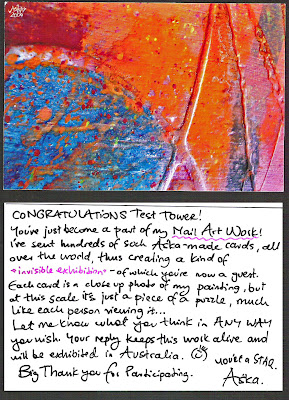 2009
CONGRATULATIONS Test Tower!
You've just become a part of my Mail Art Work!
I've sent hundreds of such Aśka-made cards, all
over the world, thus creating a kind of
"invisible exhibition" - of which you're now a guest.
Each card is a close up photo of my painting, but
at this scale it's just a piece of a puzzle, much
like each person viewing it...
Let me know what you think in ANY WAY
you wish. Your reply keeps this work alive and
will be exhibited in Australia. you're a STAR.
Big Thank you for Participating. Aśka.